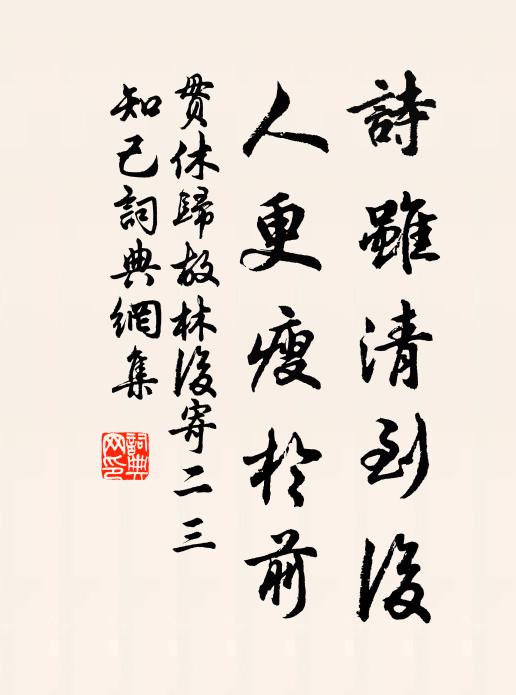 詩雖清到後
人更瘦於前
貫休歸故林後寄二三
知己詞典網集
詞典網印